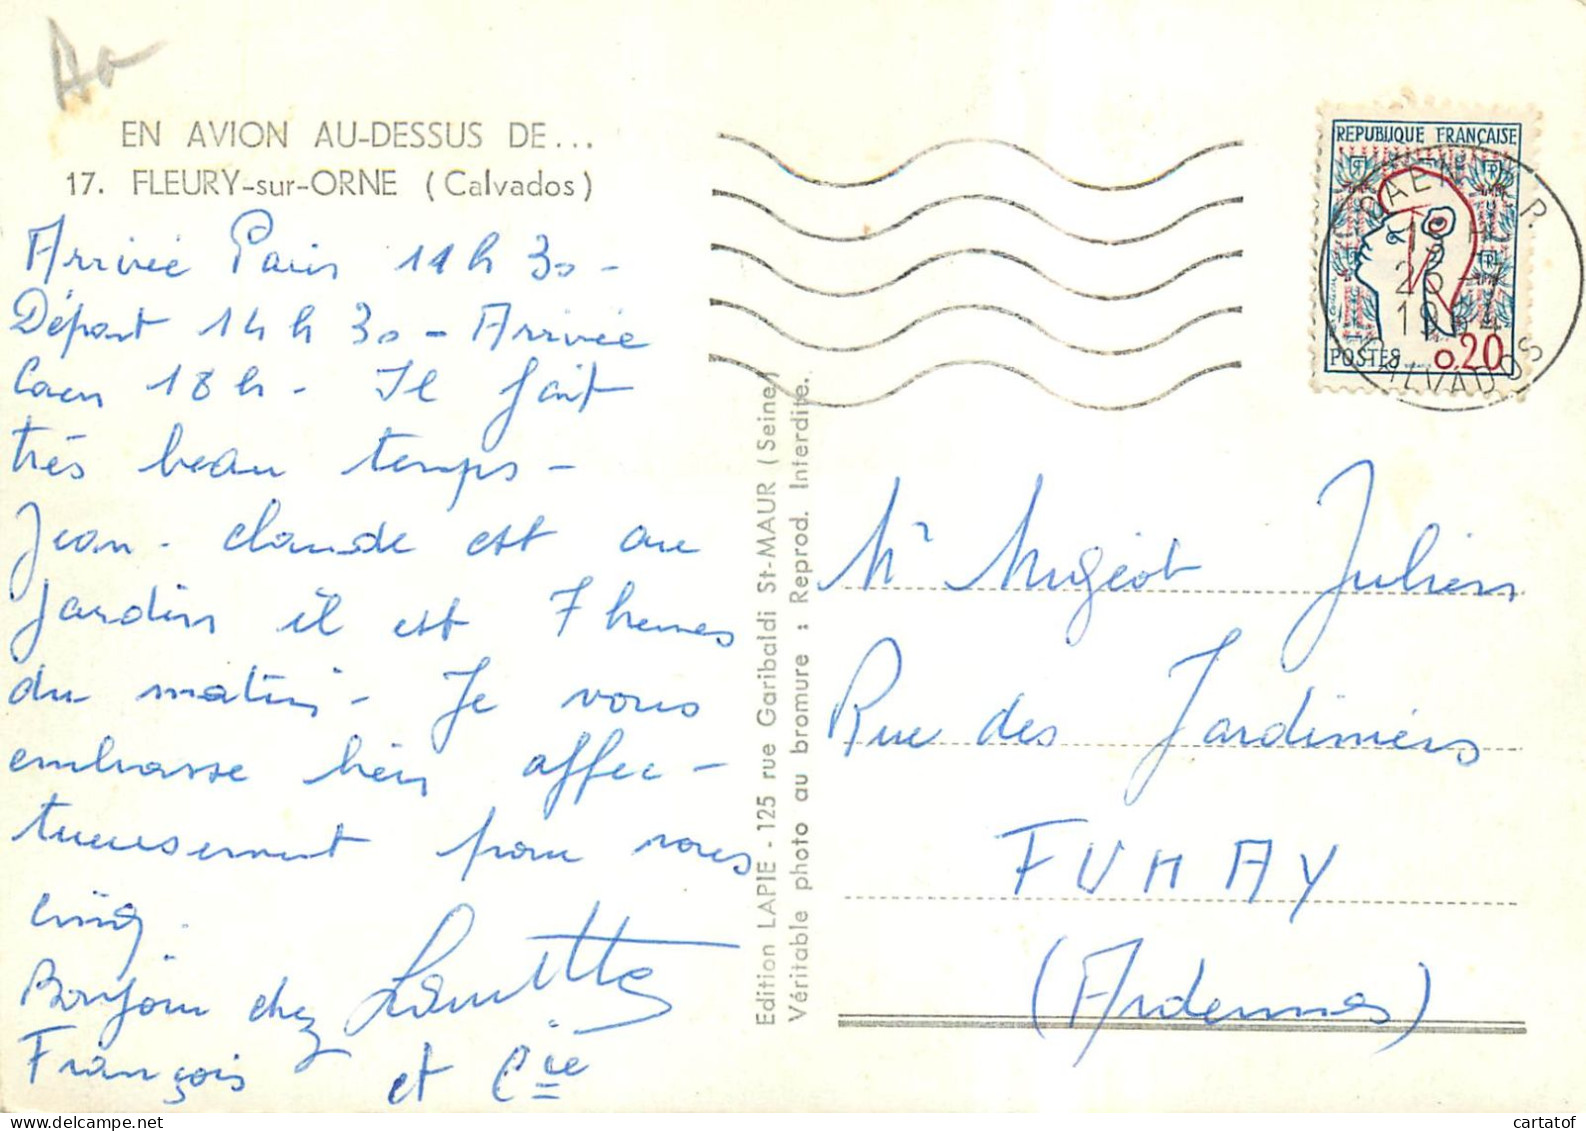 EN AVION AU-DESSUS DE...
17. FLEURY-sur-ORNE (Calvados)
Arrivée Paris 11h30 -
Départ 14h30 - Arrivée
Caen 18h - Il fait
très beau temps -
Jean-claude est au
Jardin il est 7 heures
du matin - Je vous
embrasse bien affec-
tueusement pour vous
cinq.
Bonjour chez
François et Cie
Edition LAPIE - 125 rue Garibaldi St-MAUR (Seine)
Véritable photo au bromure : Reprod. Interdite.
REPUBLIQUE FRANÇAISE
POSTES 0.20
CAEN R.P.
CALVADOS
Mr Migeot Julien
Rue des Jardiniers
FUMAY
(Ardennes)
cartatof